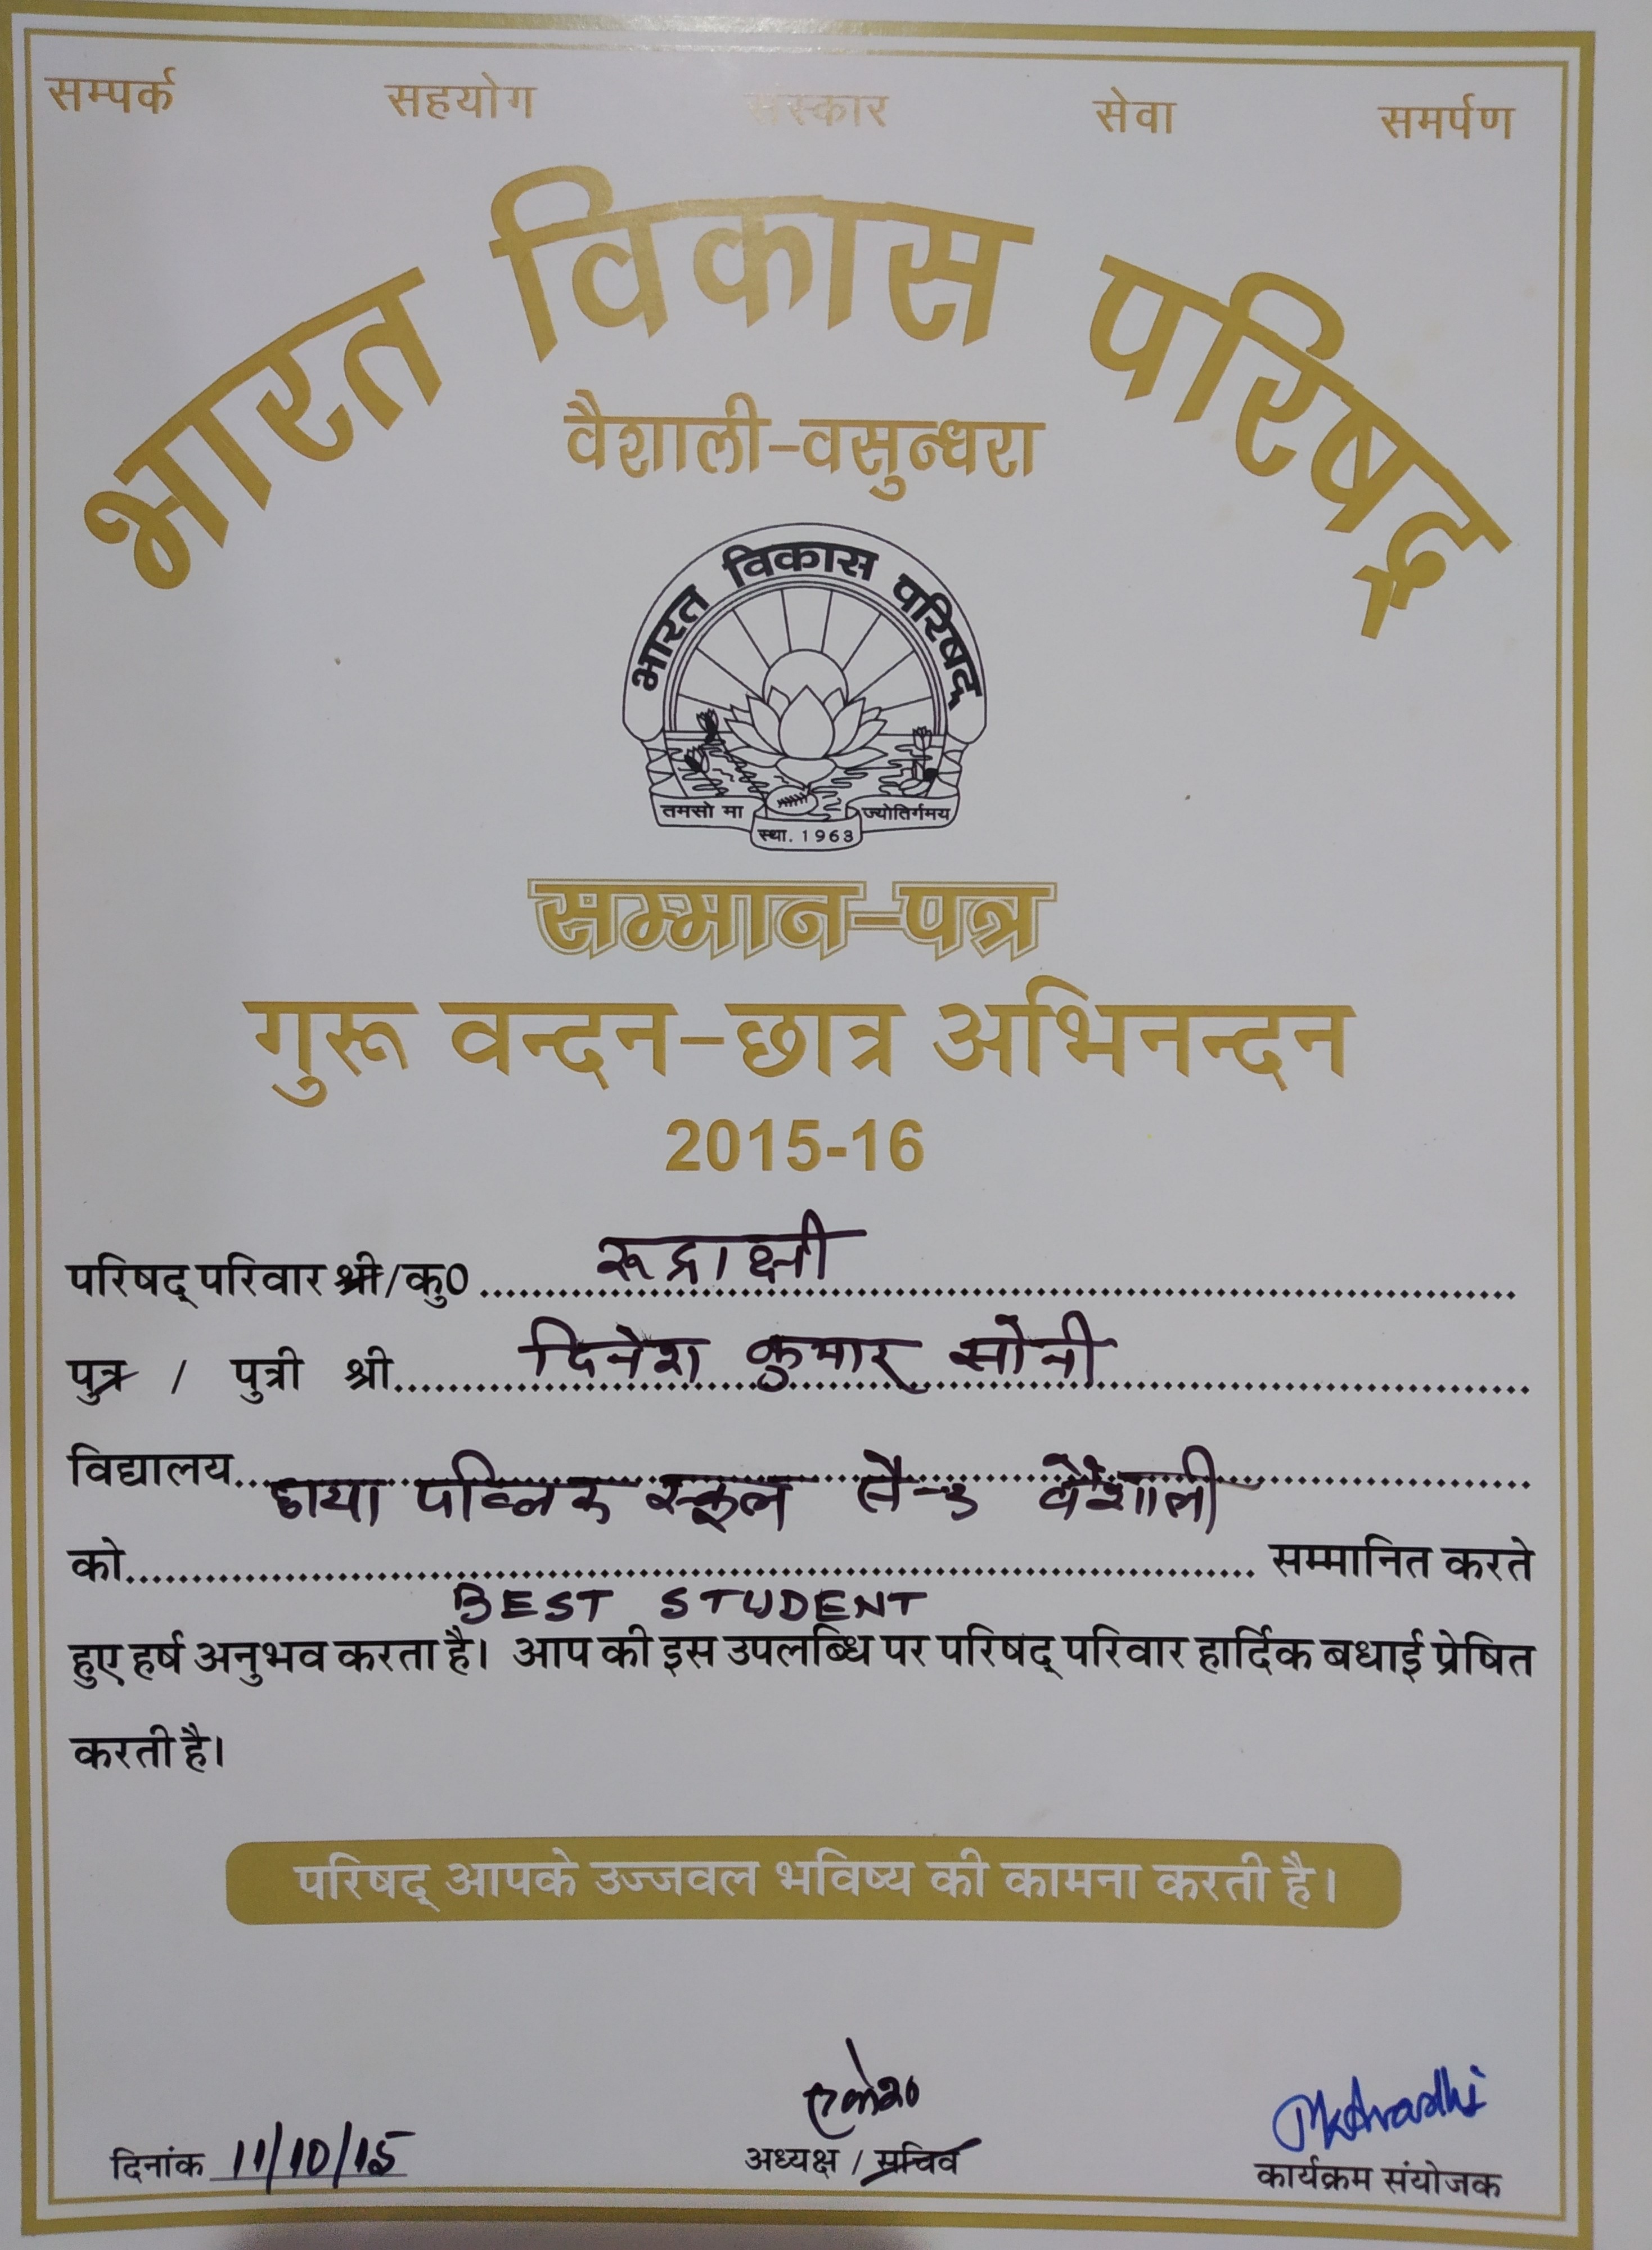 सम्पर्क सहयोग संस्कार सेवा समर्पण
भारत विकास परिषद्
वैशाली-वसुन्धरा
भारत विकास परिषद्
तमसो मा ज्योतिर्गमय
स्था. 1963
सम्मान-पत्र
गुरू वन्दन-छात्र अभिनन्दन
2015-16
परिषद् परिवार श्री/कु0 रूद्राक्षी
पुत्र / पुत्री श्री दिनेश कुमार सोनी
विद्यालय छाया पब्लिक स्कूल सै-3 वैशाली
को BEST STUDENT सम्मानित करते
हुए हर्ष अनुभव करता है। आप की इस उपलब्धि पर परिषद् परिवार हार्दिक बधाई प्रेषित
करती है।
परिषद् आपके उज्जवल भविष्य की कामना करती है।
दिनांक 11/10/15 अध्यक्ष / सचिव कार्यक्रम संयोजक